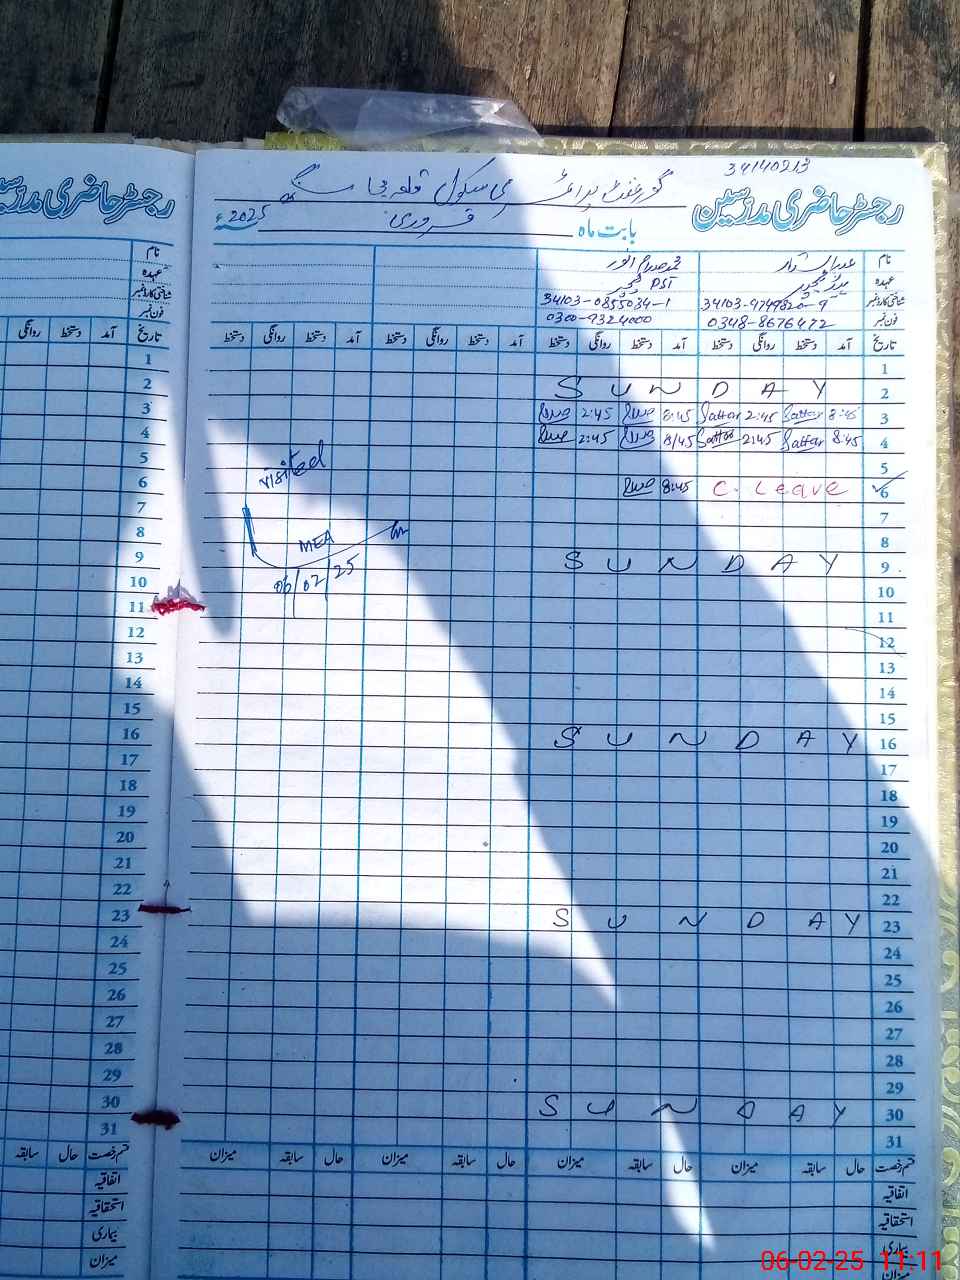 34140213
رجسٹر حاضری مدرسین
گورنمنٹ پرائمری سکول قلعہ
بابت ماہ فروری 2025ء
نام
عہدہ
شناختی کارڈ نمبر
فون نمبر
محمد صدام انور
PST ٹیچر
34103-0855034-1 34103-9749820-9
0300-9324000 0348-8676472
تاریخ آمد دستخط روانگی دستخط آمد دستخط روانگی دستخط آمد دستخط روانگی دستخط آمد دستخط روانگی دستخط
1
2 SUNDAY
3 8:45 Sattar 2:45 Sattar 8:45 2:45
4 8:45 Sattar 2:45 Sattar 8/45 2:45
5
6 C. Leave 8:45
7
8
9 SUNDAY
10
11
12
13
14
15
16 SUNDAY
17
18
19
20
21
22
23 SUNDAY
24
25
26
27
28
29
30 SUNDAY
31
visited
MEA
06/02/25
قسم رخصت حال سابقہ میزان حال سابقہ میزان حال سابقہ میزان حال سابقہ میزان
اتفاقیہ
استحقاقیہ
بیماری
میزان
رجسٹر حاضری مدرسین
نام
عہدہ
شناختی کارڈ نمبر
فون نمبر
تاریخ آمد دستخط روانگی
1
2
3
4
5
6
7
8
9
10
11
12
13
14
15
16
17
18
19
20
21
22
23
24
25
26
27
28
29
30
31
قسم رخصت حال سابقہ
اتفاقیہ
استحقاقیہ
بیماری
میزان
06-02-25 11:11